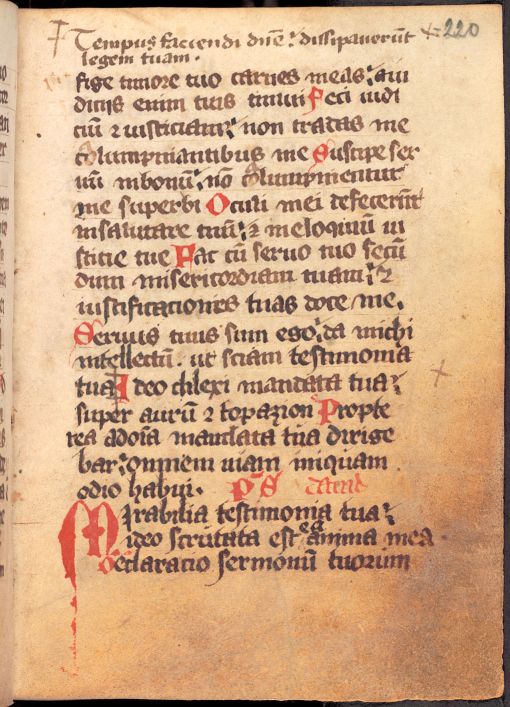 Tempus faciendi dn̄e: dissipauerūt 220
legem tuam.
fige timore tuo carnes meas: a iu
dicijs enim tuis timui Feci iudi
ciū ⁊ iusticiam: non tradas me
calumpniantibus me Suscipe ser
uū in bonū: nō calumpnientur
me superbi Oculi mei defecerūt
in salutare tuū: ⁊ in eloquiū iu
sticie tue Fac cū seruo tuo secū
dum misericordiam tuam: ⁊
iustificationes tuas doce me.
Seruus tuus sum ego: da michi
intellectū. ut sciam testimonia
tua Ideo dilexi mandata tua:
super aurū ⁊ topazion Propte
rea ad oīa mandata tua dirige
bar: omnem uiam iniquam
odio habui. pS
Mirabilia testimonia tua:
ideo scrutata est ea anima mea
Declaracio sermonū tuorum